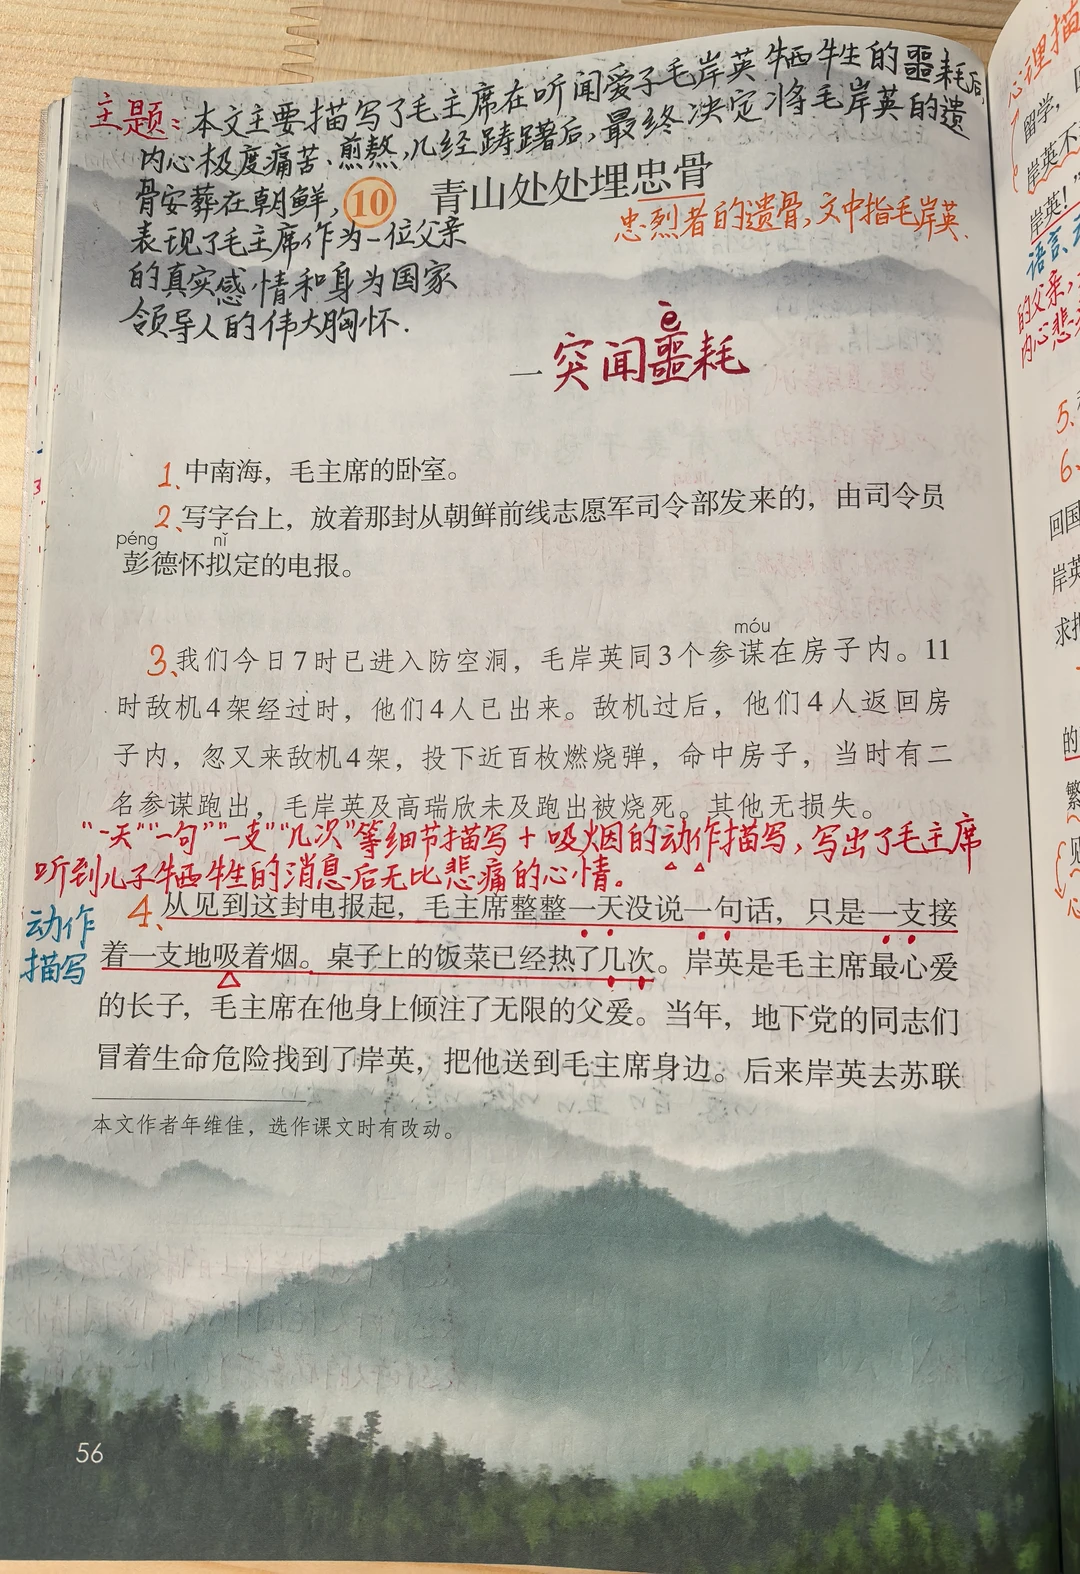 主题：本文主要描写了毛主席在听闻爱子毛岸英牺牲的噩耗后，
内心极度痛苦、煎熬，几经踌躇后，最终决定将毛岸英的遗
骨安葬在朝鲜，
表现了毛主席作为一位父亲
的真实感情和身为国家
领导人的伟大胸怀.
10 青山处处埋忠骨
忠烈者的遗骨，文中指毛岸英.
è
一 突闻噩耗
1、中南海，毛主席的卧室。
2、写字台上，放着那封从朝鲜前线志愿军司令部发来的，由司令员
péng nǐ
彭德怀拟定的电报。
móu
3、我们今日7时已进入防空洞，毛岸英同3个参谋在房子内。11
时敌机4架经过时，他们4人已出来。敌机过后，他们4人返回房
子内，忽又来敌机4架，投下近百枚燃烧弹，命中房子，当时有二
名参谋跑出，毛岸英及高瑞欣未及跑出被烧死。其他无损失。
“一天”“一句”“一支”“几次”等细节描写+吸烟的动作描写，写出了毛主席
听到儿子牺牲的消息后无比悲痛的心情。
动作
描写
4、从见到这封电报起，毛主席整整一天没说一句话，只是一支接
着一支地吸着烟。桌子上的饭菜已经热了几次。岸英是毛主席最心爱
的长子，毛主席在他身上倾注了无限的父爱。当年，地下党的同志们
冒着生命危险找到了岸英，把他送到毛主席身边。后来岸英去苏联
本文作者年维佳，选作课文时有改动。
56
心理描
留学，
岸英不
岸英！”
语言、
的父亲，
内心悲
5、
6、
回国
岸英
求
的
繁
见
心